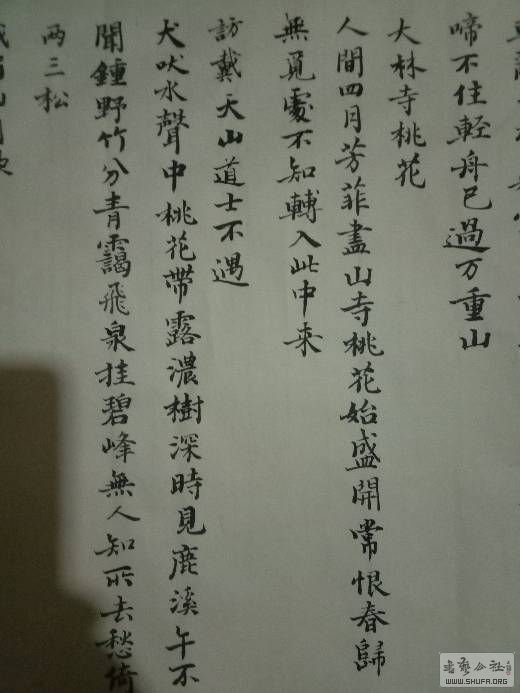 啼不住輕舟已過万重山
大林寺桃花
人間四月芳菲盡山寺桃花始盛開常恨春歸
無覓處不知轉入此中来
訪戴天山道士不遇
犬吠水聲中桃花帶露濃樹深時見鹿溪午不
聞鍾野竹分青靄飛泉挂碧峰無人知所去愁倚
两三松
書藝公社
WWW.SHUFA.ORG